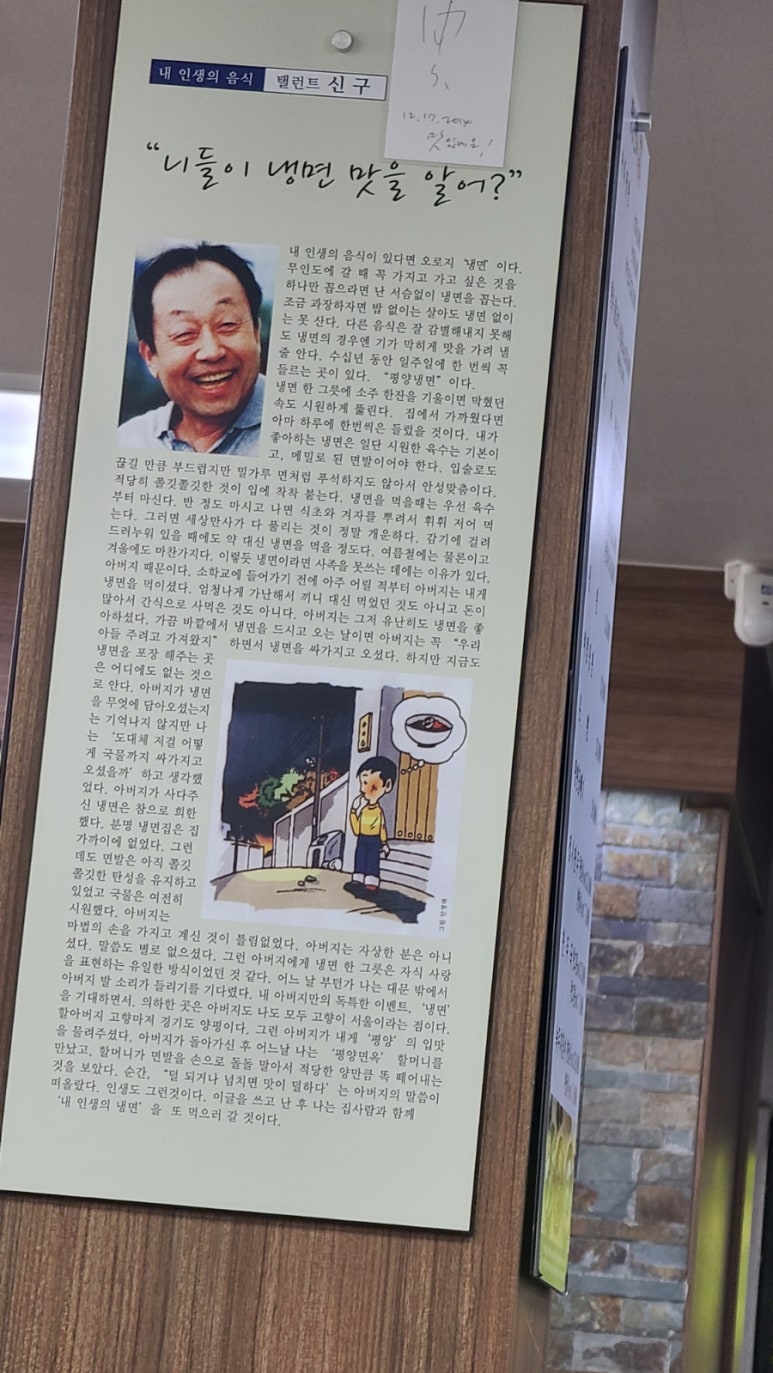 내 인생의 음식 탤런트 신 구
12.17.2014
맛있어요!
“니들이 냉면 맛을 알어?”
내 인생의 음식이 있다면 오로지 ‘냉면’ 이다.
무인도에 갈 때 꼭 가지고 가고 싶은 것을
하나만 꼽으라면 난 서슴없이 냉면을 꼽는다.
조금 과장하자면 밥 없이는 살아도 냉면 없이
는 못 산다. 다른 음식은 잘 감별해내지 못해
도 냉면의 경우엔 기가 막히게 맛을 가려 낼
줄 안다. 수십년 동안 일주일에 한 번씩 꼭
들르는 곳이 있다. “평양냉면” 이다.
냉면 한 그릇에 소주 한잔을 기울이면 막혔던
속도 시원하게 뚫린다. 집에서 가까웠다면
아마 하루에 한번씩은 들렀을 것이다. 내가
좋아하는 냉면은 일단 시원한 육수는 기본이
고, 메밀로 된 면발이어야 한다. 입술로도
끊길 만큼 부드럽지만 밀가루 면처럼 푸석하지도 않아서 안성맞춤이다.
적당히 쫄깃쫄깃한 것이 입에 착착 붙는다. 냉면을 먹을때는 우선 육수
부터 마신다. 반 정도 마시고 나면 식초와 겨자를 뿌려서 휘휘 저어 먹
는다. 그러면 세상만사가 다 풀리는 것이 정말 개운하다. 감기에 걸려
드러누워 있을 때에도 약 대신 냉면을 먹을 정도다. 여름철에는 물론이고
겨울에도 마찬가지다. 이렇듯 냉면이라면 사족을 못쓰는 데에는 이유가 있다.
아버지 때문이다. 소학교에 들어가기 전에 아주 어릴 적부터 아버지는 내게
냉면을 먹이셨다. 엄청나게 가난해서 끼니 대신 먹었던 것도 아니고 돈이
많아서 간식으로 사먹은 것도 아니다. 아버지는 그저 유난히도 냉면을 좋
아하셨다. 가끔 바깥에서 냉면을 드시고 오는 날이면 아버지는 꼭 “우리
아들 주려고 가져왔지” 하면서 냉면을 싸가지고 오셨다. 하지만 지금도
냉면을 포장 해주는 곳
은 어디에도 없는 것으
로 안다. 아버지가 냉면
을 무엇에 담아오셨는지
는 기억나지 않지만 나
는 ‘도대체 저걸 어떻
게 국물까지 싸가지고
오셨을까’ 하고 생각했
었다. 아버지가 사다주
신 냉면은 참으로 희한
했다. 분명 냉면집은 집
가까이에 없었다. 그런
데도 면발은 아직 쫄깃
쫄깃한 탄성을 유지하고
있었고 국물은 여전히
시원했다. 아버지는
마법의 손을 가지고 계신 것이 틀림없었다. 아버지는 자상한 분은 아니
셨다. 말씀도 별로 없으셨다. 그런 아버지에게 냉면 한 그릇은 자식 사랑
을 표현하는 유일한 방식이었던 것 같다. 어느 날 부턴가 나는 대문 밖에서
아버지 발 소리가 들리기를 기다렸다. 내 아버지만의 독특한 이벤트, ‘냉면’
을 기대하면서. 의하한 곳은 아버지도 나도 모두 고향이 서울이라는 점이다.
할아버지 고향마저 경기도 양평이다. 그런 아버지가 내게 ‘평양’ 의 입맛
을 물려주셨다. 아버지가 돌아가신 후 어느날 나는 ‘평양면옥’ 할머니를
만났고, 할머니가 면발을 손으로 돌돌 말아서 적당한 양만큼 똑 떼어내는
것을 보았다. 순간, “덜 되거나 넘치면 맛이 덜하다” 는 아버지의 말씀이
떠올랐다. 인생도 그런것이다. 이글을 쓰고 난 후 나는 집사람과 함께
‘내 인생의 냉면’ 을 또 먹으러 갈 것이다.